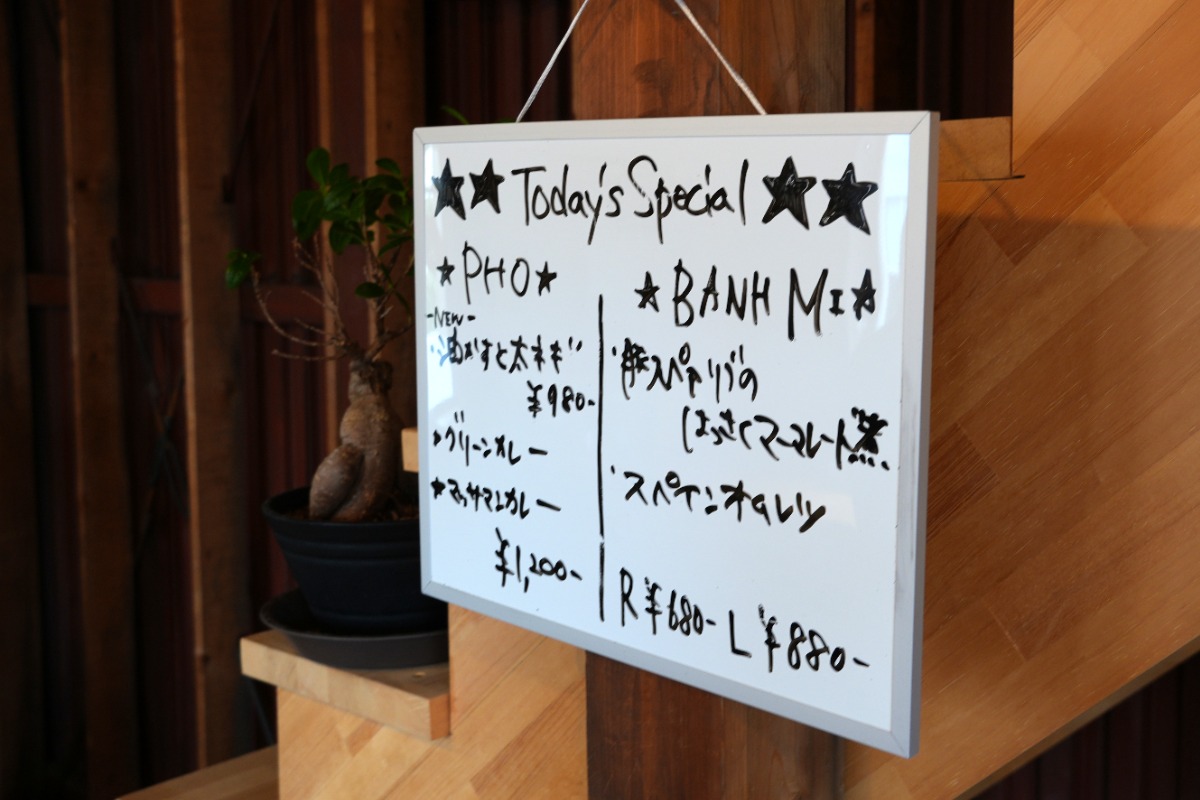 ★★ Today's Special ★★
★PHO★
-NEW-
"油かすと太ネギ"
¥980-
グリーンカレー
★マッサマンカレー
¥1,200-
★BANH MI★
豚スペアリブの
はっさくマーマレード煮
スペインオムレツ
R ¥680- L ¥880-